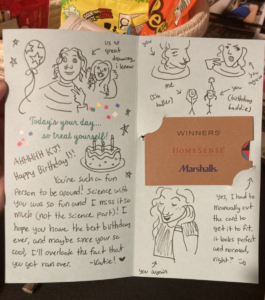 us so
great
drawing
i know
Today's your day...
so treat yourself!
AHHHHH KJ!
Happy Birthday!!!
You're such a fun
person to be around! Science with
you was so fun and I miss it so
much (not the science part)! I
hope you have the best birthday
ever, and maybe since your so
cool, I'll overlook the fact that
you got ran over. -Katie!
you
me
(I'm
taller)
you
(birthday
baddie)
WINNERS
HOMESENSE
Marshalls
Yes, I had to
manually cut
the card to
get it to fit,
it looks perfect
and normal,
right?
you again